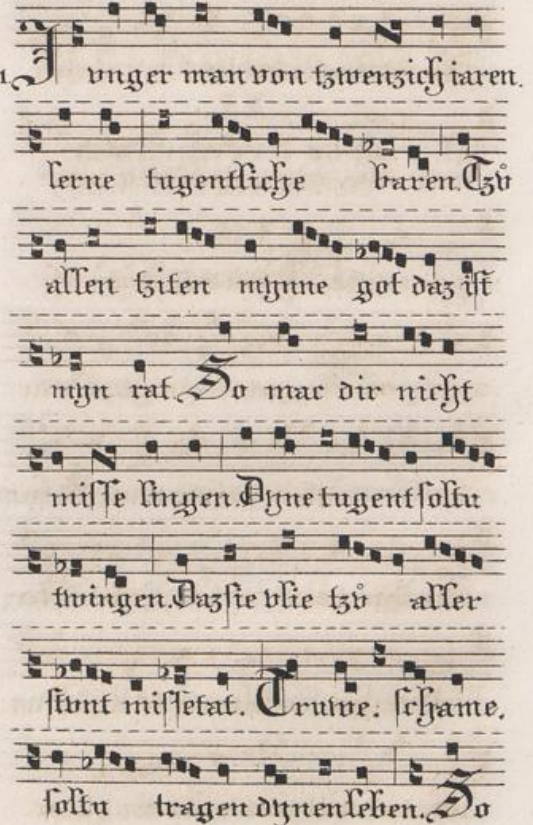 1. Jvnger man von tzwenzich iaren.
lerne tugentliche baren. Tzv̊
allen tziten mynne got daz ist
myn rat. So mac dir nicht
misse lingen. Dyne tugent soltu
twingen. Daz sie vlie tzv̊ aller
stvnt missetat. Truwe. schame.
soltu tragen dynen leben. So